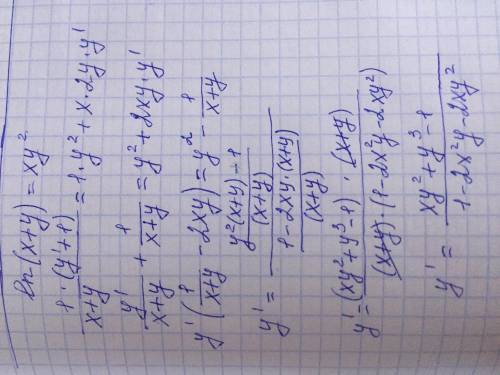 ln(x+y) = xy²
1·(y'+1)/(x+y) = 1·y² + x·2y·y'
y'/(x+y) + 1/(x+y) = y² + 2xy·y'
y'(1/(x+y) - 2xy) = y² - 1/(x+y)
y' = ((y²(x+y) - 1)/(x+y))/((1 - 2xy·(x+y))/(x+y))
y' = (xy² + y³ - 1)·(x+y)/((x+y)·(1 - 2x²y - 2xy²))
y' = (xy² + y³ - 1)/(1 - 2x²y - 2xy²)